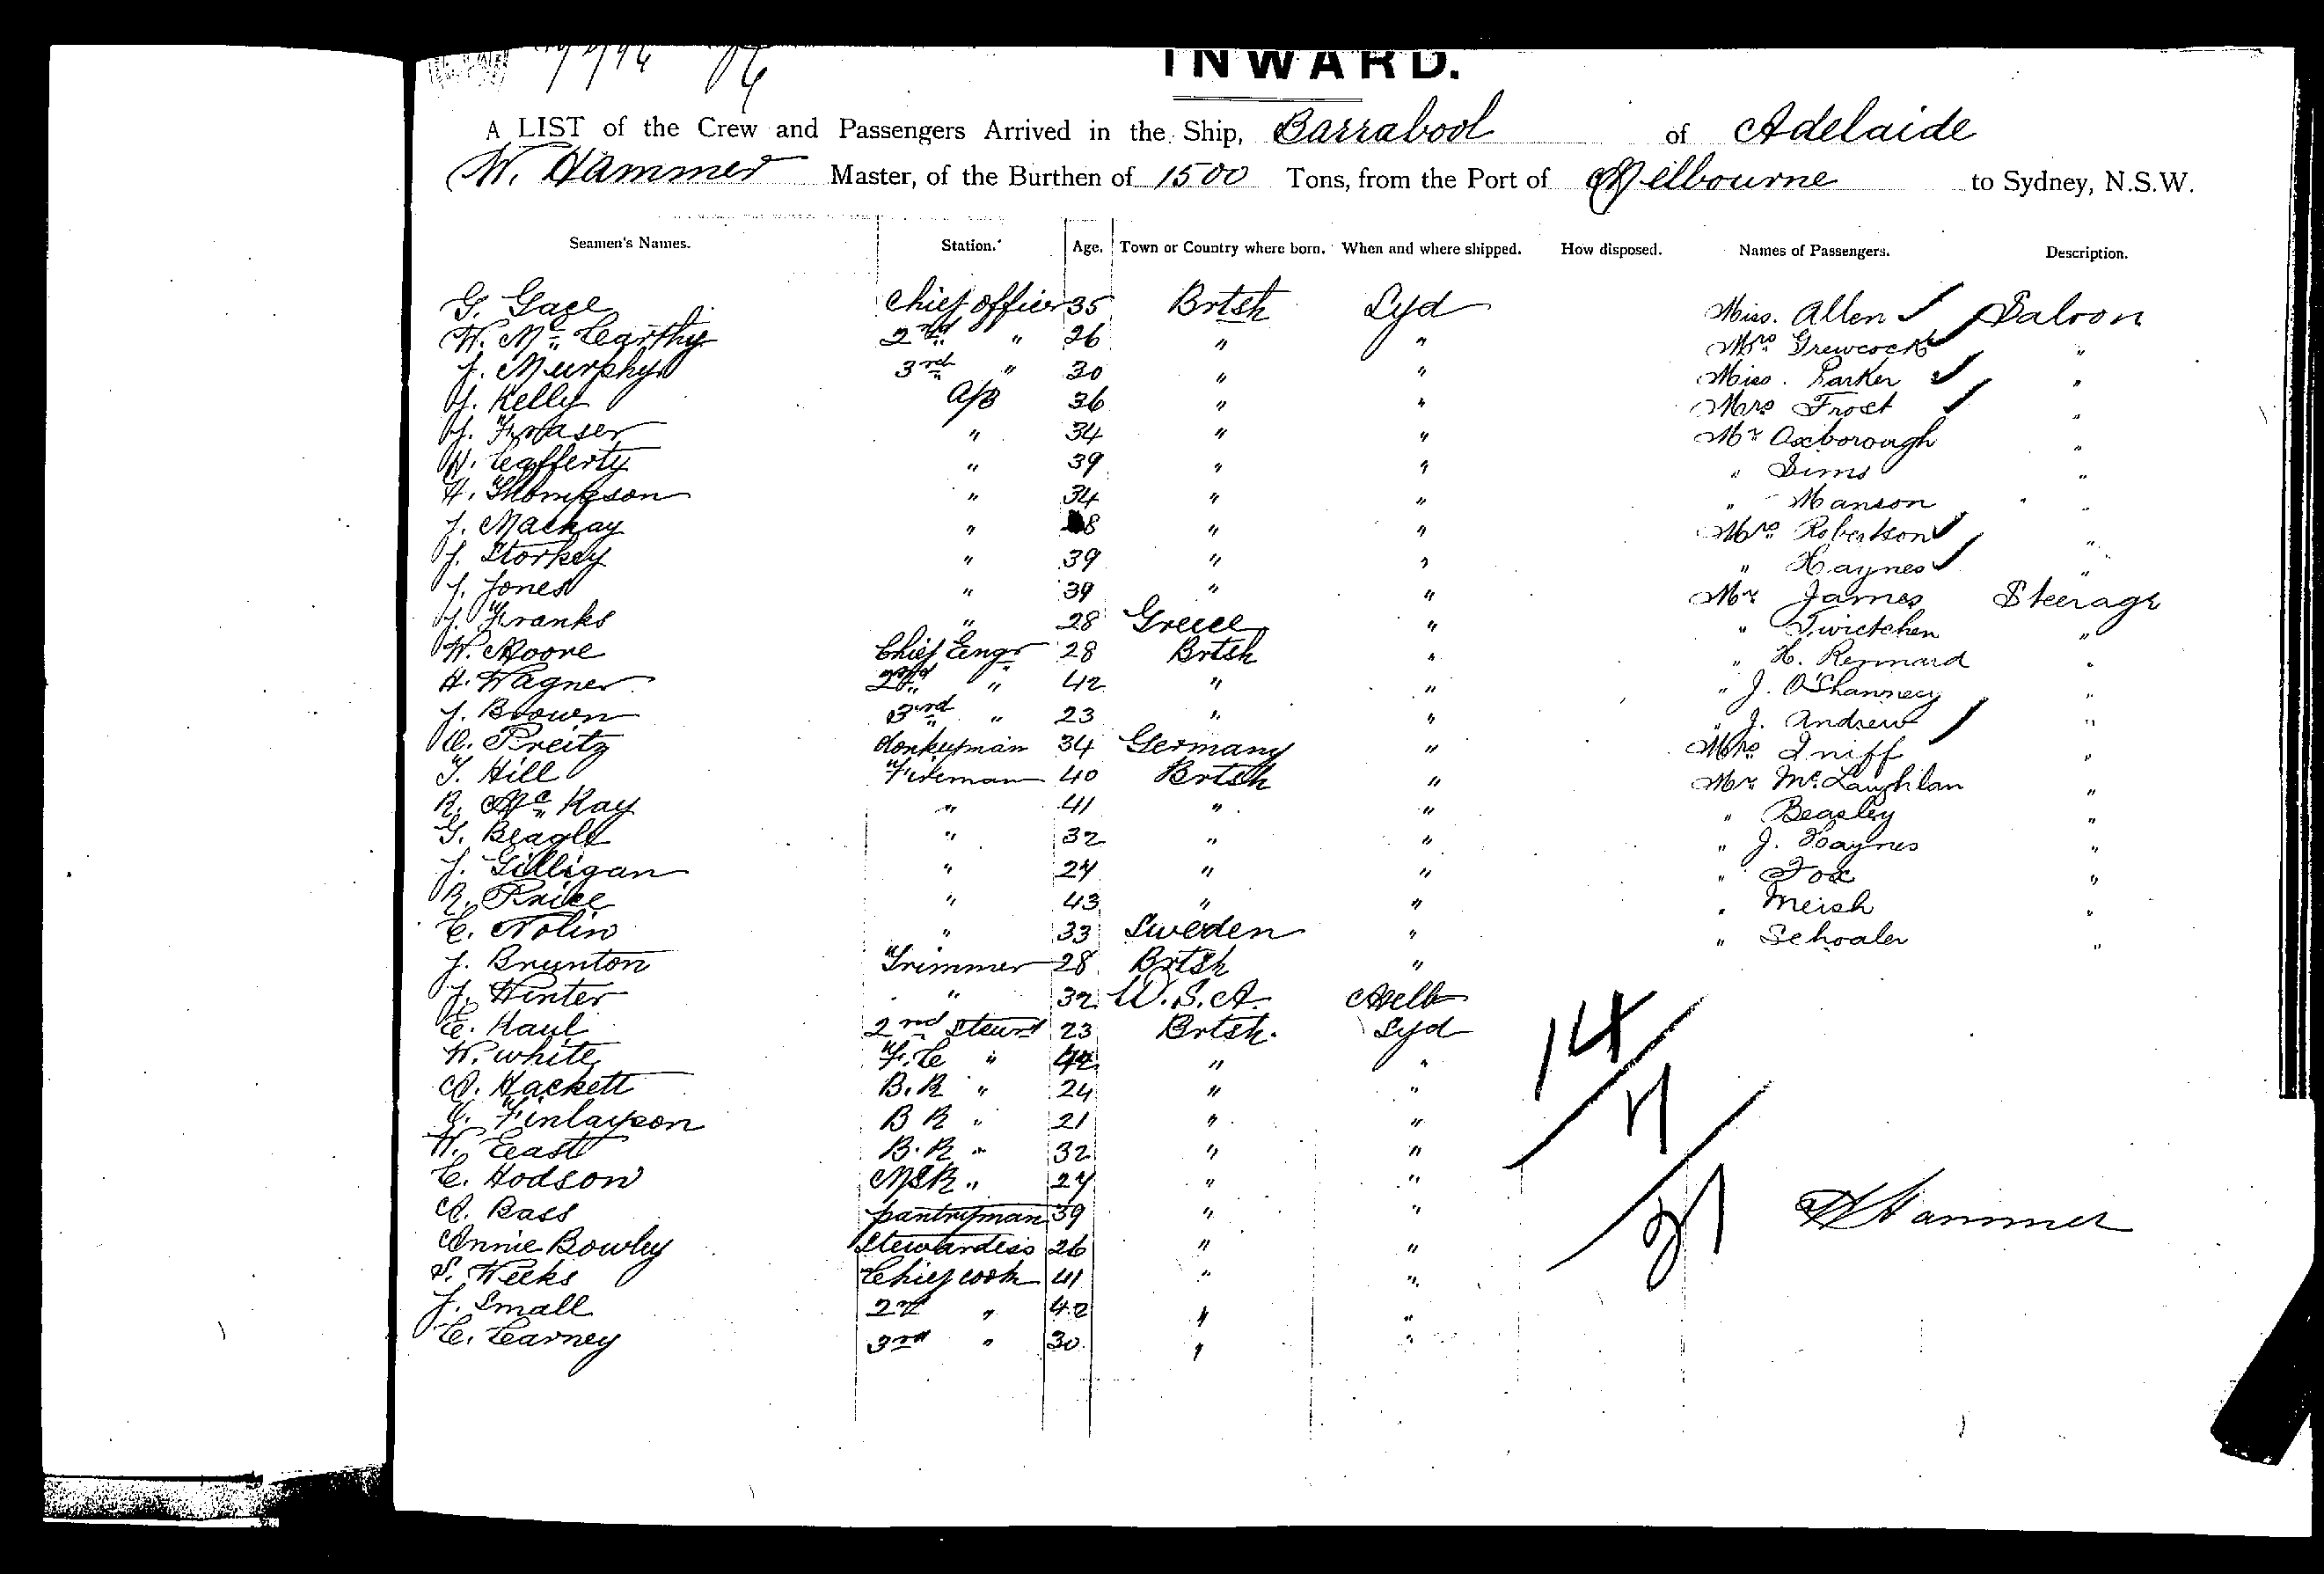 INWARD.
A LIST of the Crew and Passengers Arrived in the Ship, Barrabool of Adelaide
W. Hammer Master, of the Burthen of 1500 Tons, from the Port of Melbourne to Sydney, N.S.W.
Seamen's Names. Station. Age. Town or Country where born. When and where shipped. How disposed. Names of Passengers. Description.
G. Gace Chief officer 35 Brtsh Syd Miss. Allen Saloon
W. Mc Cearthy 2nd " 26 " " Mrs Grewcock "
J. Murphy 3rd " 30 " " Miss. Parker "
J. Kelly A/B 36 " " Mrs Frost "
J. Fraser " 34 " " Mr Oxborough "
N. Cafferty " 39 " " " Sims "
H. Thompson " 34 " " " Manson "
J. Mackay " 8 " " Mrs Robertson "
J. Storkey " 39 " " " Haynes "
J. Jones " 39 " " Mr James Steerage
J. Franks " 28 Greece " " Twictchen "
W. Moore Chief Engr 28 Brtsh " " H. Rennard "
H. Wagner 2nd " 42 " " " J. O'Shannecy "
J. Brown 3rd " 23 " " " J. Andrew "
C. Preitz donkeyman 34 Germany " Mrs Iniff "
T. Hill Fireman 40 Brtsh " Mr McLaughlan "
R. Mc Kay " 41 " " " Beasley "
G. Beagle " 32 " " " J. Haynes "
J. Gilligan " 24 " " " Fox "
R. Price " 43 " " " Meish "
C. Nolin " 33 Sweden " " Schoaler "
J. Brunton Trimmer 28 Brtsh "
J. Winter " 32 U.S.A. Melb
E. Kaul 2nd Stewd 23 Brtsh. Syd
W. White F.C " 42 " "
A. Hackett B.R " 24 " "
C. Finlayson B R " 21 " "
W. East B.R " 32 " "
C. Hodson MSR " 24 " "
A. Bass pantryman 39 " "
Annie Bowley Stewardess 26 " "
S. Weeks Chief cook 41 " "
J. Small 2nd " 42 " "
C. Cearney 3rd " 30 " "
14
7
21
W Hammer